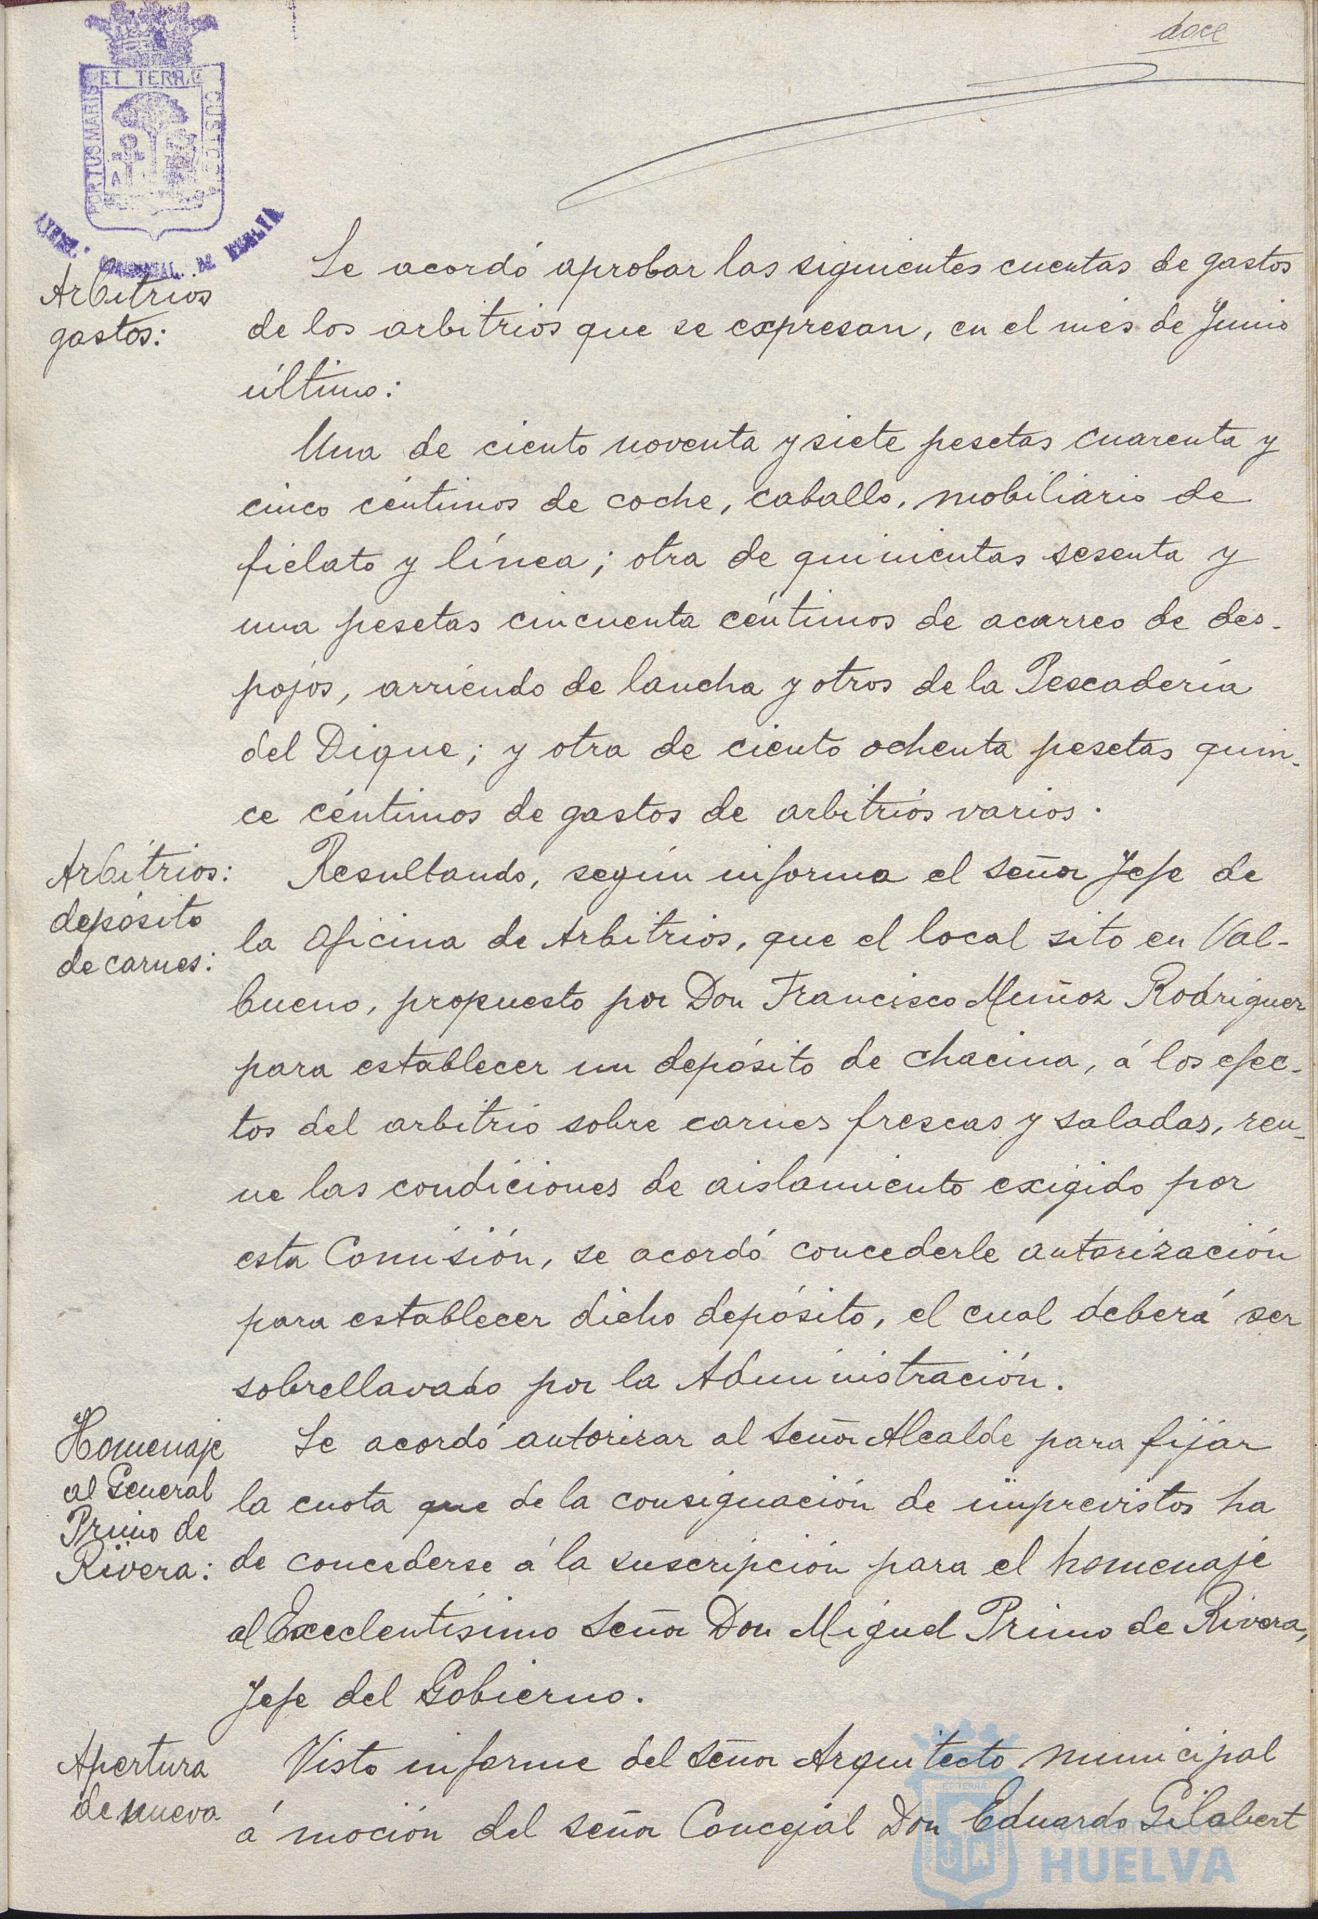 doce
PORTUS MARIS ET TERRÆ CUSTODIA
AYUNTº. CONSTITUCIONAL. DE HUELVA
Arbitrios
gastos:
Se acordó aprobar las siguientes cuentas de gastos
de los arbitrios que se expresan, en el més de Junio
último:
Una de ciento noventa y siete pesetas cuarenta y
cinco céntimos de coche, caballo, mobiliario de
fielato y línea; otra de quinientas sesenta y
una pesetas cincuenta céntimos de acarreo de des-
pojos, arriendo de lancha y otros de la Pescadería
del Dique; y otra de ciento ochenta pesetas quin-
ce céntimos de gastos de arbitrios varios.
Arbitrios:
depósito
de carnes:
Resultando, según informa el señor Jefe de
la Oficina de Arbitrios, que el local sito en Val-
bueno, propuesto por Don Francisco Muñoz Rodriguez
para establecer un depósito de chacina, á los efec-
tos del arbitrio sobre carnes frescas y saladas, reu-
ne las condiciones de aislamiento exigido por
esta Comisión, se acordó concederle autorización
para establecer dicho depósito, el cual deberá ser
sobrellavado por la Administración.
Homenaje
al General
Primo de
Rivera:
Se acordó autorizar al Señor Alcalde para fijar
la cuota que de la consignación de imprevistos ha
de concederse á la suscripción para el homenaje
al Excelentísimo Señor Don Miguel Primo de Rivera,
Jefe del Gobierno.
Apertura
de nueva
Visto informe del señor Arquitecto municipal
á moción del señor Concejal Don Eduardo Gilabert
Ayuntamiento de
HUELVA